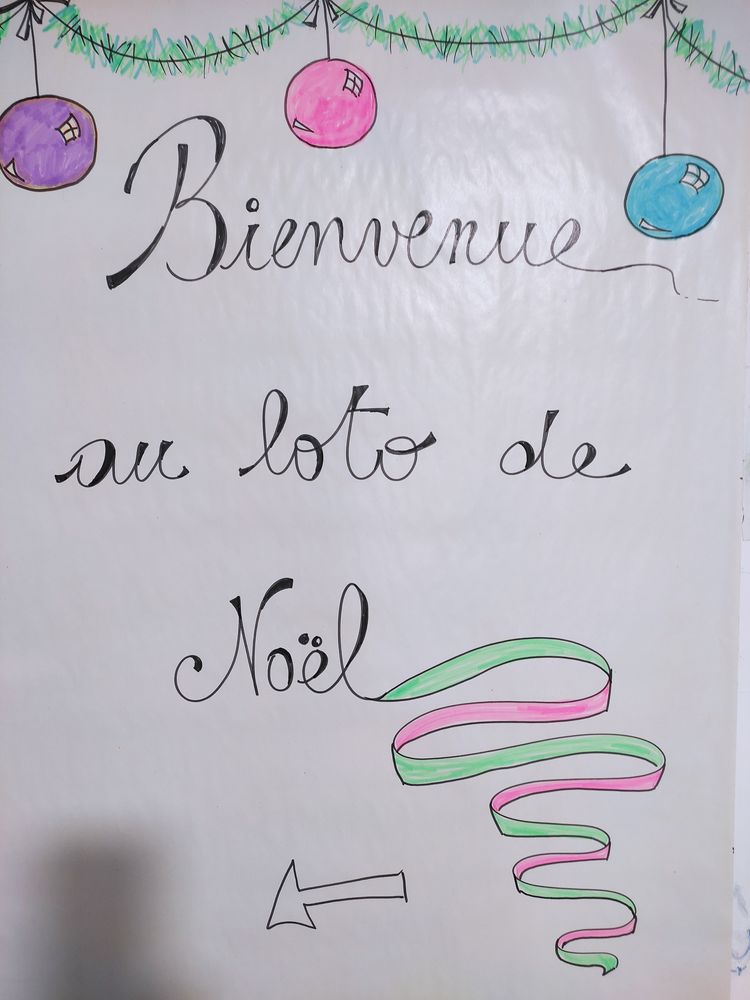 Bienvenue
au loto de
Noël